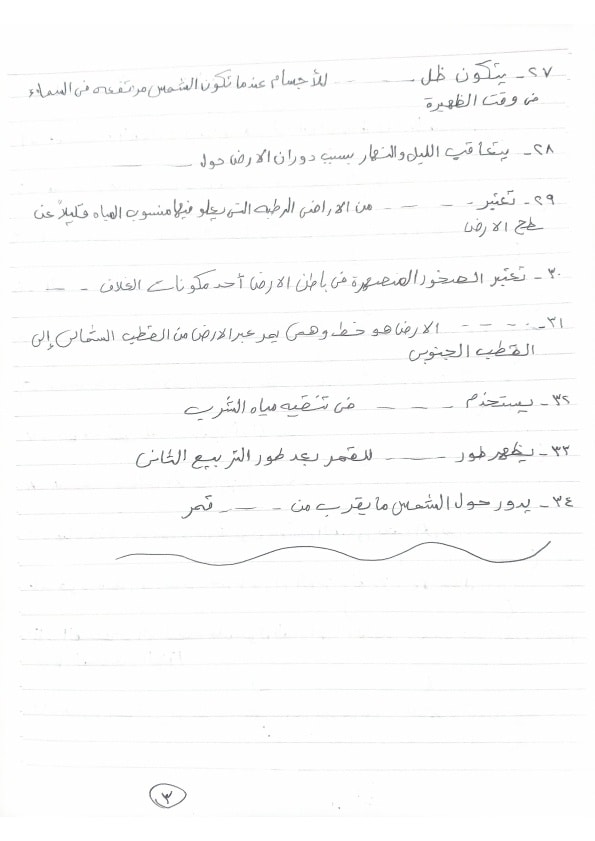 ٢٧- يتكون ظل ---- للأجسام عندما تكون الشمس مرتفعه فى السماء
فى وقت الظهيرة
٢٨- يتعاقب الليل والنهار بسبب دوران الارض حول ----
٢٩- تعتبر ---- من الاراضى الرطبه التى يعلو فيها منسوب المياه قليلاً عن
سطح الارض
٣٠- تعتبر الصخور المنصهرة فى باطن الارض أحد مكونات الغلاف ---
٣١- ---- الارض هو خط وهمى يمر عبر الارض من القطب الشمالى إلى
القطب الجنوبى
٣٢- يستخدم ---- فى تنقيه مياه الشرب
٣٣- يظهر طور ---- للقمر بعد طور التربيع الثانى
٣٤- يدور حول الشمس ما يقرب من ---- قمر
٣